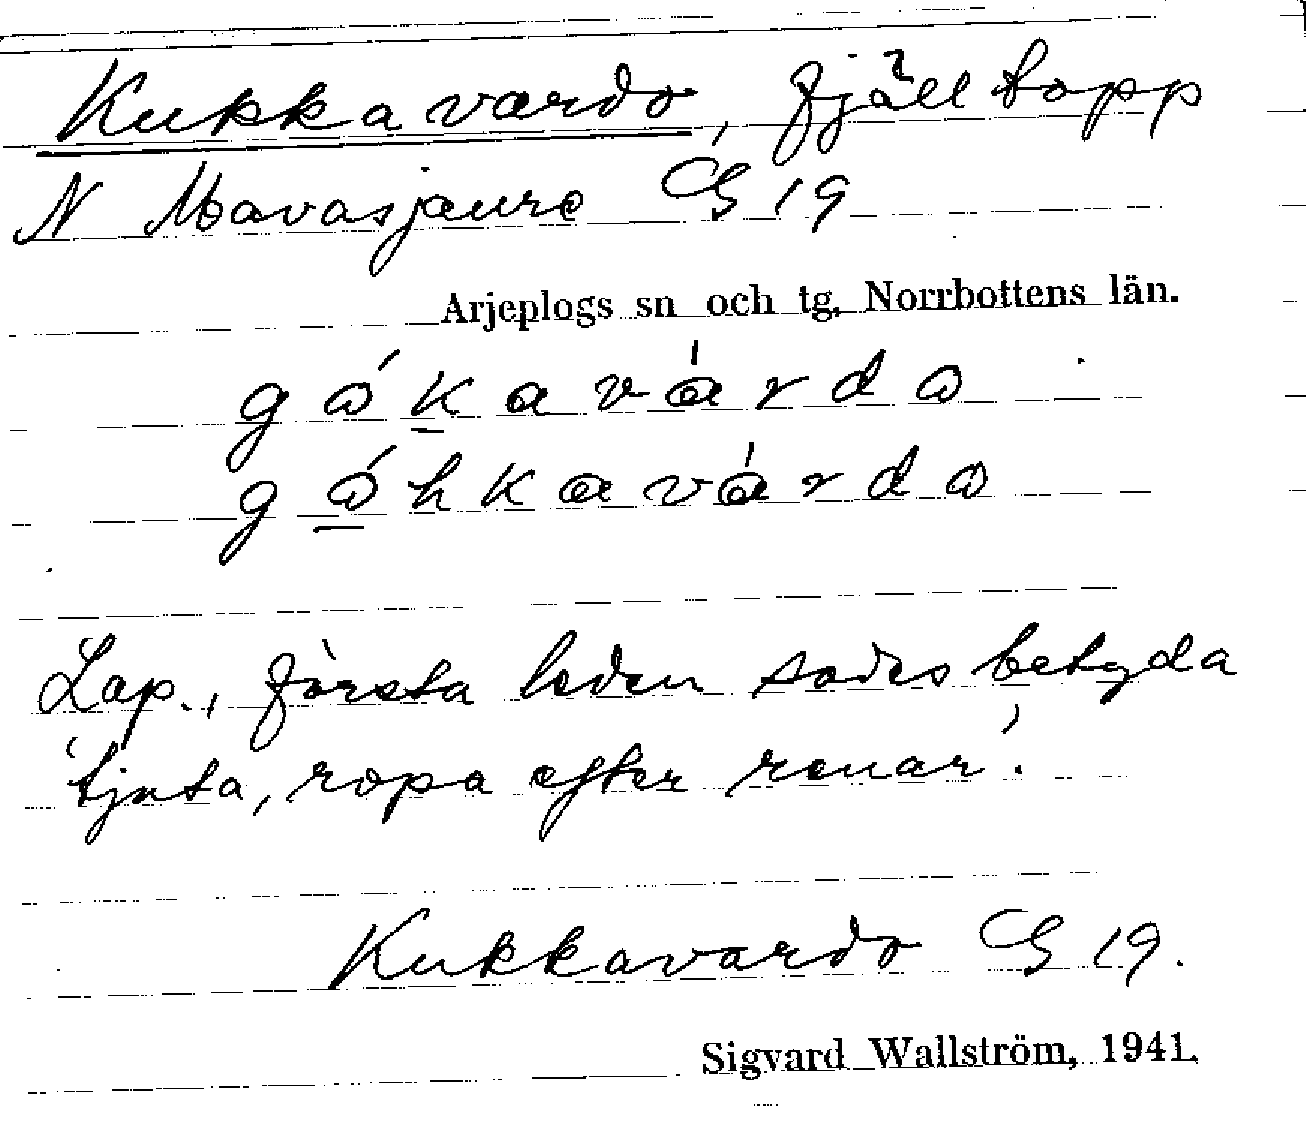 Kukkavardo, fjälltopp
N Mavasjaure G 19
Arjeplogs sn och tg, Norrbottens län.
gǻkavárdå
gǻhkavárdå
Lap., första leden sades betyda
'tjuta, ropa efter renar'.
Kukkavardo G 19.
Sigvard Wallström, 1941.